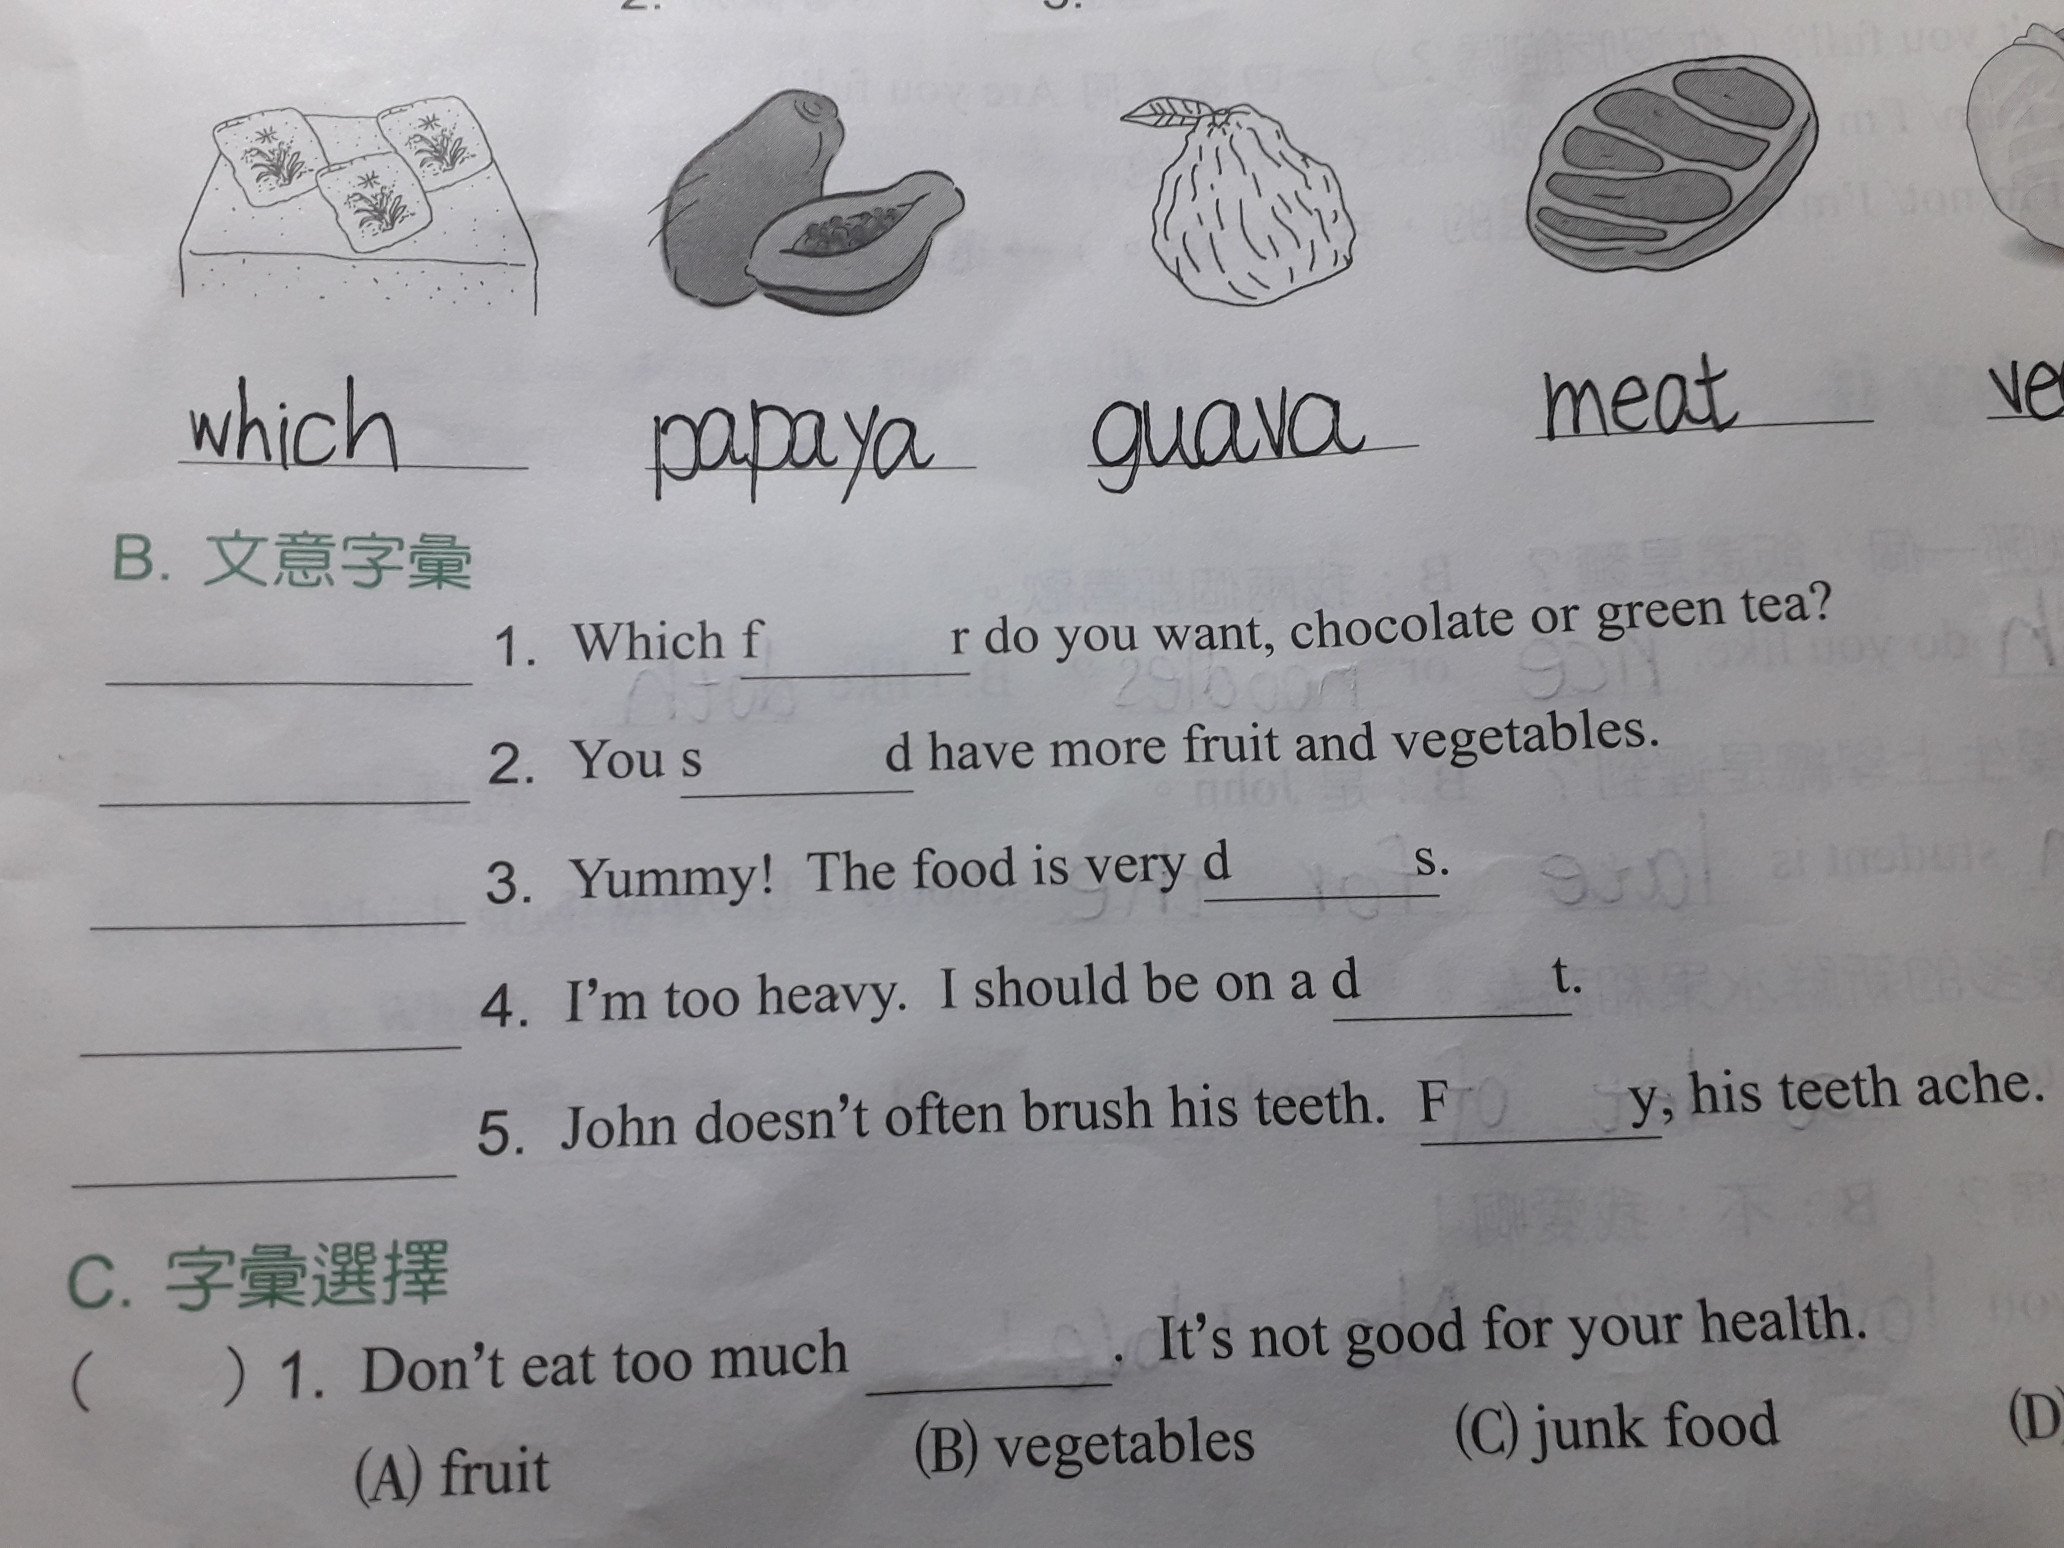 2. 3.
which papaya guava meat ve
B. 文意字彙
1. Which f______r do you want, chocolate or green tea?
2. You s______d have more fruit and vegetables.
3. Yummy! The food is very d______s.
4. I'm too heavy. I should be on a d______t.
5. John doesn't often brush his teeth. F______y, his teeth ache.
C. 字彙選擇
( ) 1. Don't eat too much ______. It's not good for your health.
(A) fruit (B) vegetables (C) junk food (D)